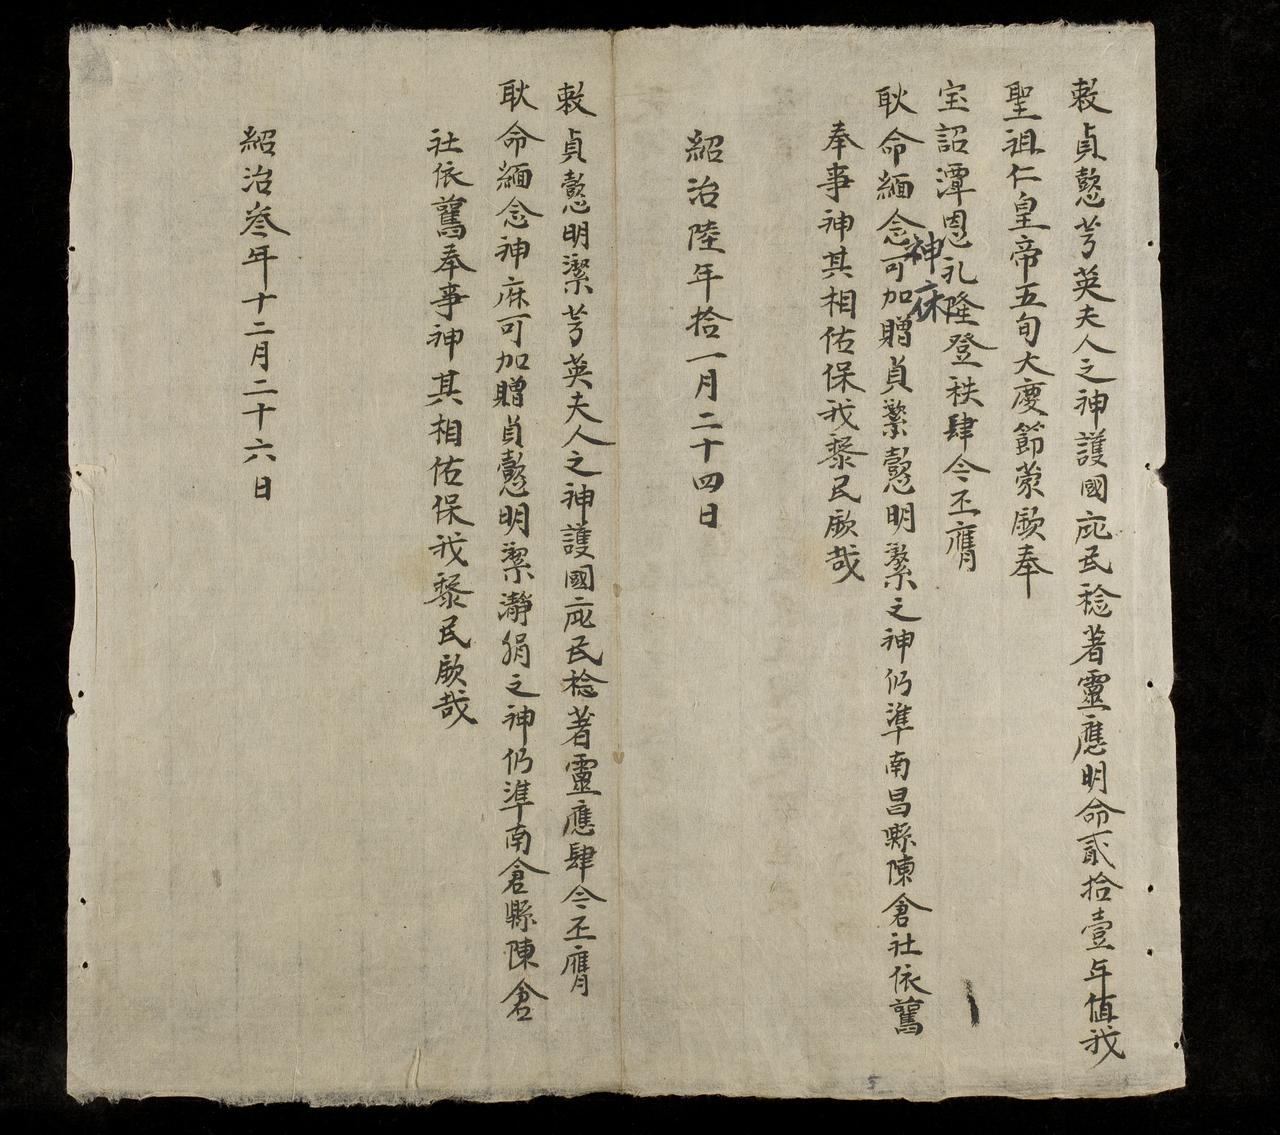 敕貞懿芳英夫人之神護國庇民稔著靈應明命貳拾壹年值我
聖祖仁皇帝五旬大慶節蒙厥奉
宝詔潭恩礼隆登秩肆今丕膺
耿命緬念神庥可加贈貞㓗懿明㓗之神仍準南昌縣陳倉社依舊
奉事神其相佑保我黎民厥哉
紹治陸年拾一月二十四日
敕貞懿明潔芳英夫人之神護國庇民稔著靈應肆今丕膺
耿命緬念神庥可加贈貞懿明潔瀞娟之神仍準南倉縣陳倉
社依舊奉事神其相佑保我黎民厥哉
紹治叄年十二月二十六日